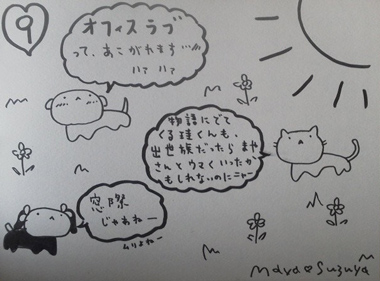 9
オフィスラブ
って、あこがれます!!!!
ハァ ハァ
物語にでて
くる 珪くんも、
出世族だったら まや
さんと ウマくいったか
もしれないのにニャー
窓際
じゃあねー
ムリよねー
Maya ♡ Suzuya